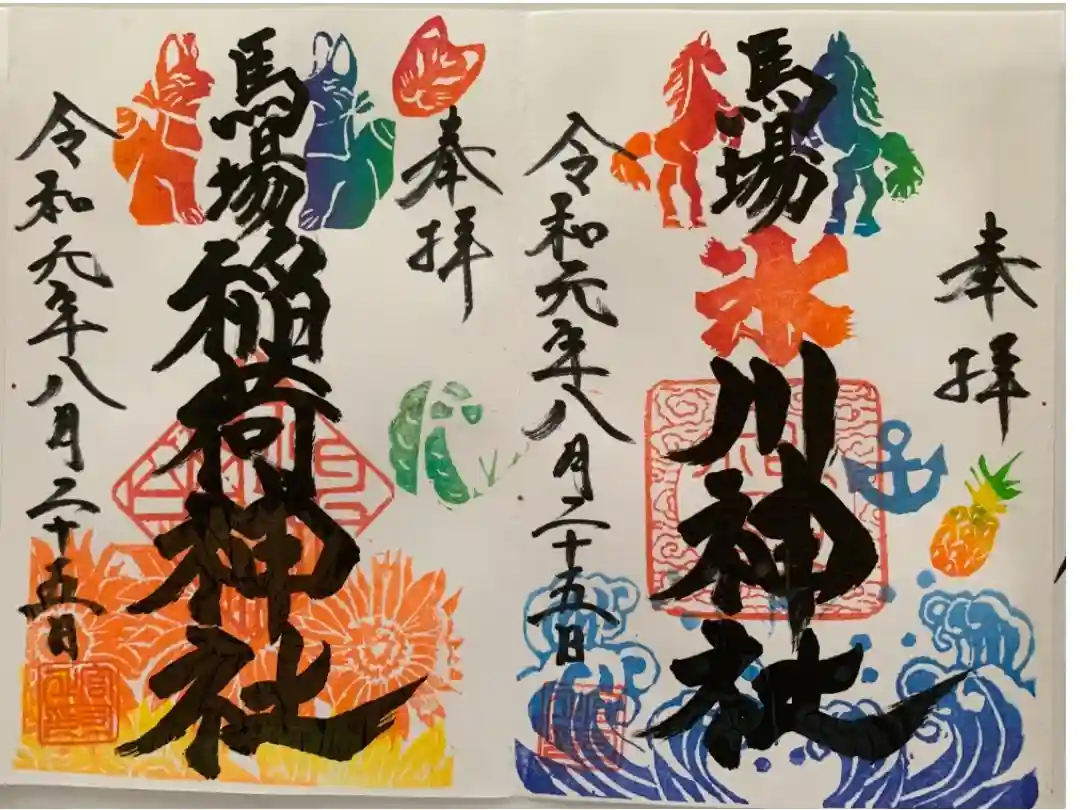 奉拝
馬場氷川神社
令和元年八月二十五日
奉拝
馬場稲荷神社
令和元年八月二十五日